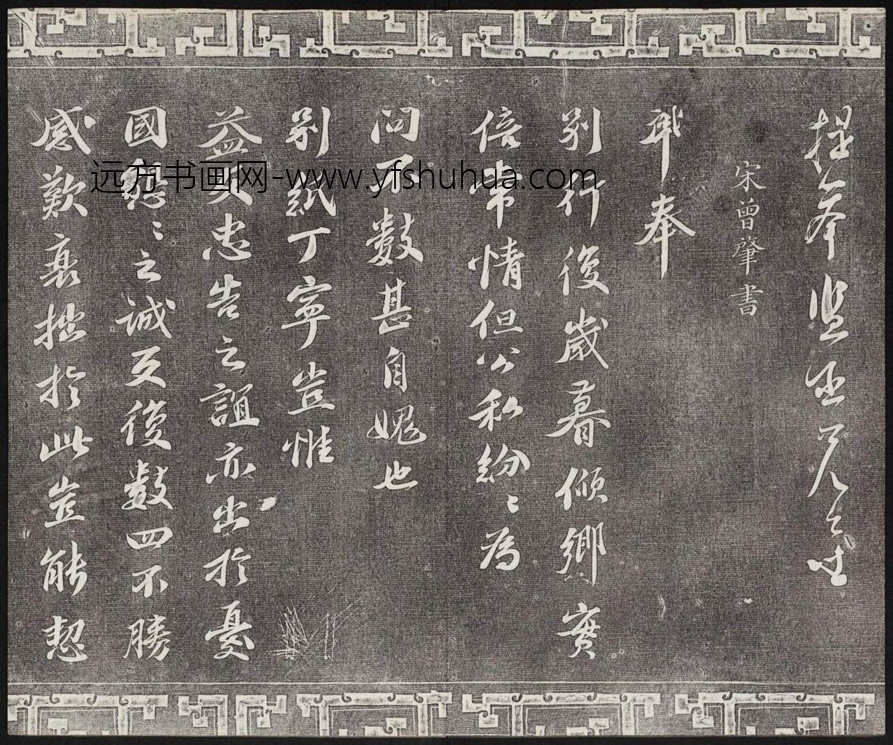 提舉監丞
宋曾肇書
肇奉
別行後歲暮傾鄉實
倍常情但公私紛〻為
問不數甚自媿也
別紙丁寧豈惟
益友忠告之誼亦出於憂
國〻之誠反復數四不勝
感歎衰拙於此豈能
远方书画网-www.yfshuhua.com